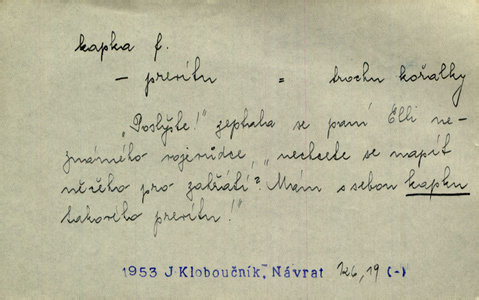 kapka f.
– prevítu = trochu kořalky
„Poslyšte!" zeptala se paní Elli ne-
známého vojevůdce, „nechcete se napít
něčeho pro zahřátí? Mám s sebou kapku
takového prevítu!"
1953 J Kloboučník, Návrat 126,19 (-)